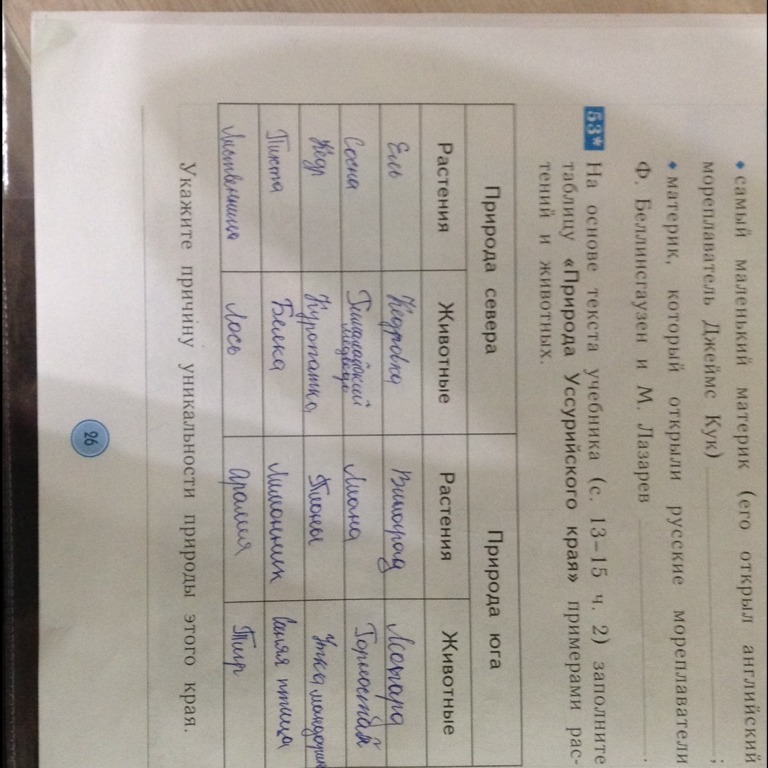 • самый маленький материк (его открыл английский
мореплаватель Джеймс Кук) ;
• материк, который открыли русские мореплаватели
Ф. Беллинсгаузен и М. Лазарев .
53* На основе текста учебника (с. 13–15 ч. 2) заполните
таблицу «Природа Уссурийского края» примерами рас-
тений и животных.
Природа севера Природа юга
Растения Животные Растения Животные
Ель Кедровка Виноград Леопард
Сосна Гималайский медведь Лиана Горностай
Кедр Куропатка Пионы Утка мандаринка
Пихта Белка Лимонник Синяя птица
Лиственница Лось Аралия Тигр
Укажите причину уникальности природы этого края.
26